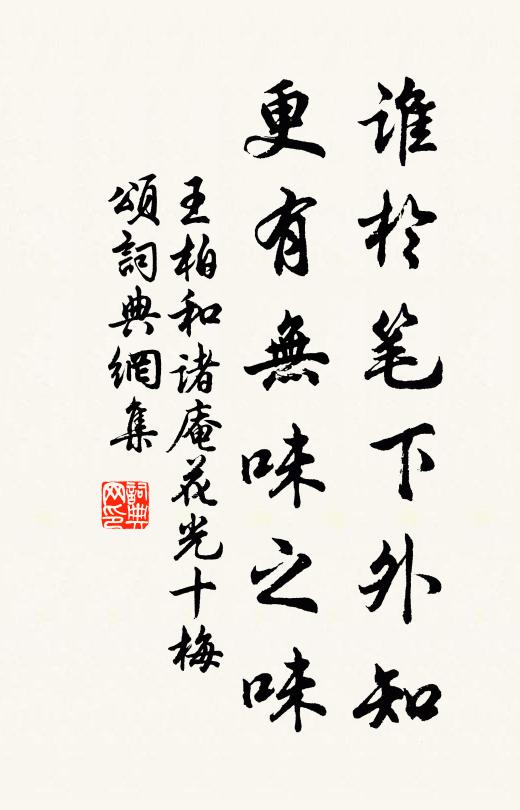 誰於笔下外知
更有無味之味
王柏和諸庵花光十梅
頌詞典網集
詞典网印